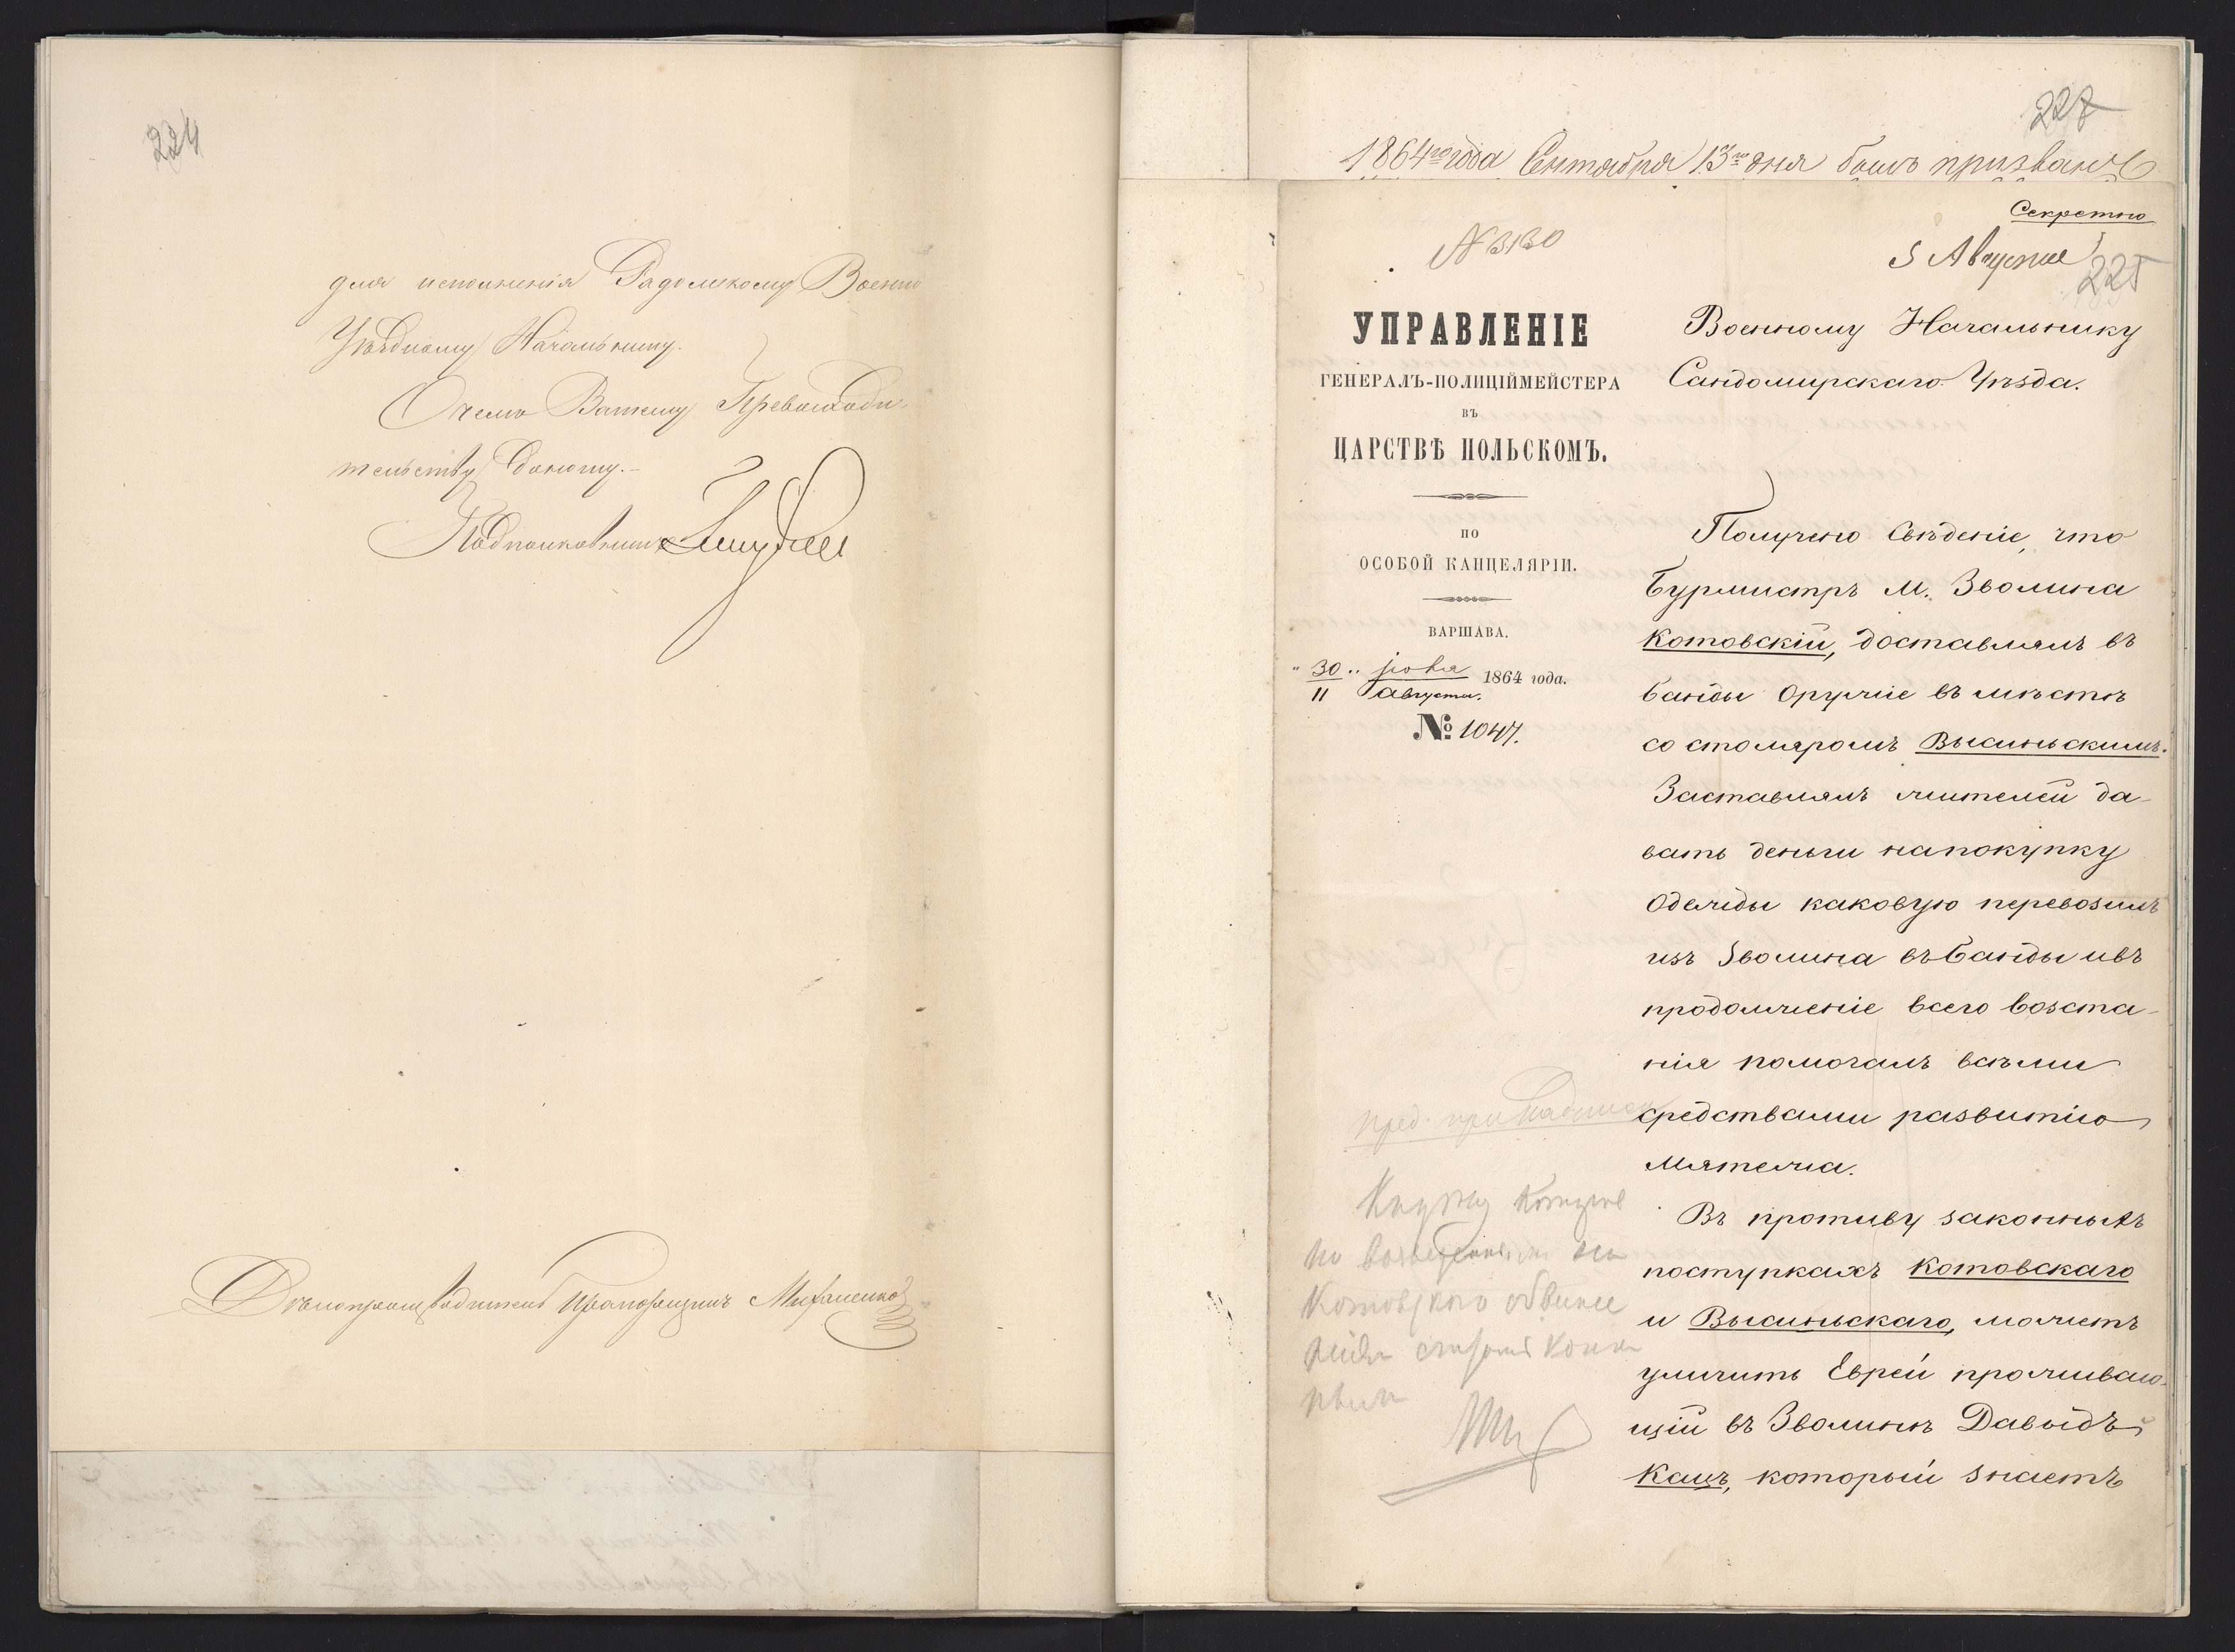 224
для исполненія Радомскому Военно
Уѣздному Начальнику.
О чемъ Вашему Превосходи-
тельству доношу.-
Подполковникъ
Дѣлопроизводитель Прапорщикъ Михаленко
227
1864го года Сентября 13го дня былъ призванъ
Секретно
5 Августа
225
№ 3130
УПРАВЛЕНІЕ
ГЕНЕРАЛЪ-ПОЛИЦІЙМЕЙСТЕРА
ВЪ
ЦАРСТВѢ ПОЛЬСКОМЪ.
ПО
ОСОБОЙ КАНЦЕЛЯРІИ.
ВАРШАВА.
"30" іюля 1864 года.
11 августа.
№ 1047.
Военному Начальнику
Сандомирскаго Уѣзда.
Получено свѣденіе, что
Бурмистръ М. Зволина
Котовскій, доставлялъ въ
банды оружіе въ мѣстѣ
со столяромъ Высиньскимъ.
Заставлялъ жителей да-
вать деньги на покупку
одежды каковую перевозилъ
изъ Зволина въ банды и въ
продолженіе всего возста-
нія помогалъ всѣми
средствами развитію
мятежа.
Въ противу законныхъ
поступкахъ Котовскаго
и Высиньскаго, можетъ
уличить Еврей проживаю-
щій въ Зволинѣ Давыдъ
Кацъ, который знаетъ
Котовскаго